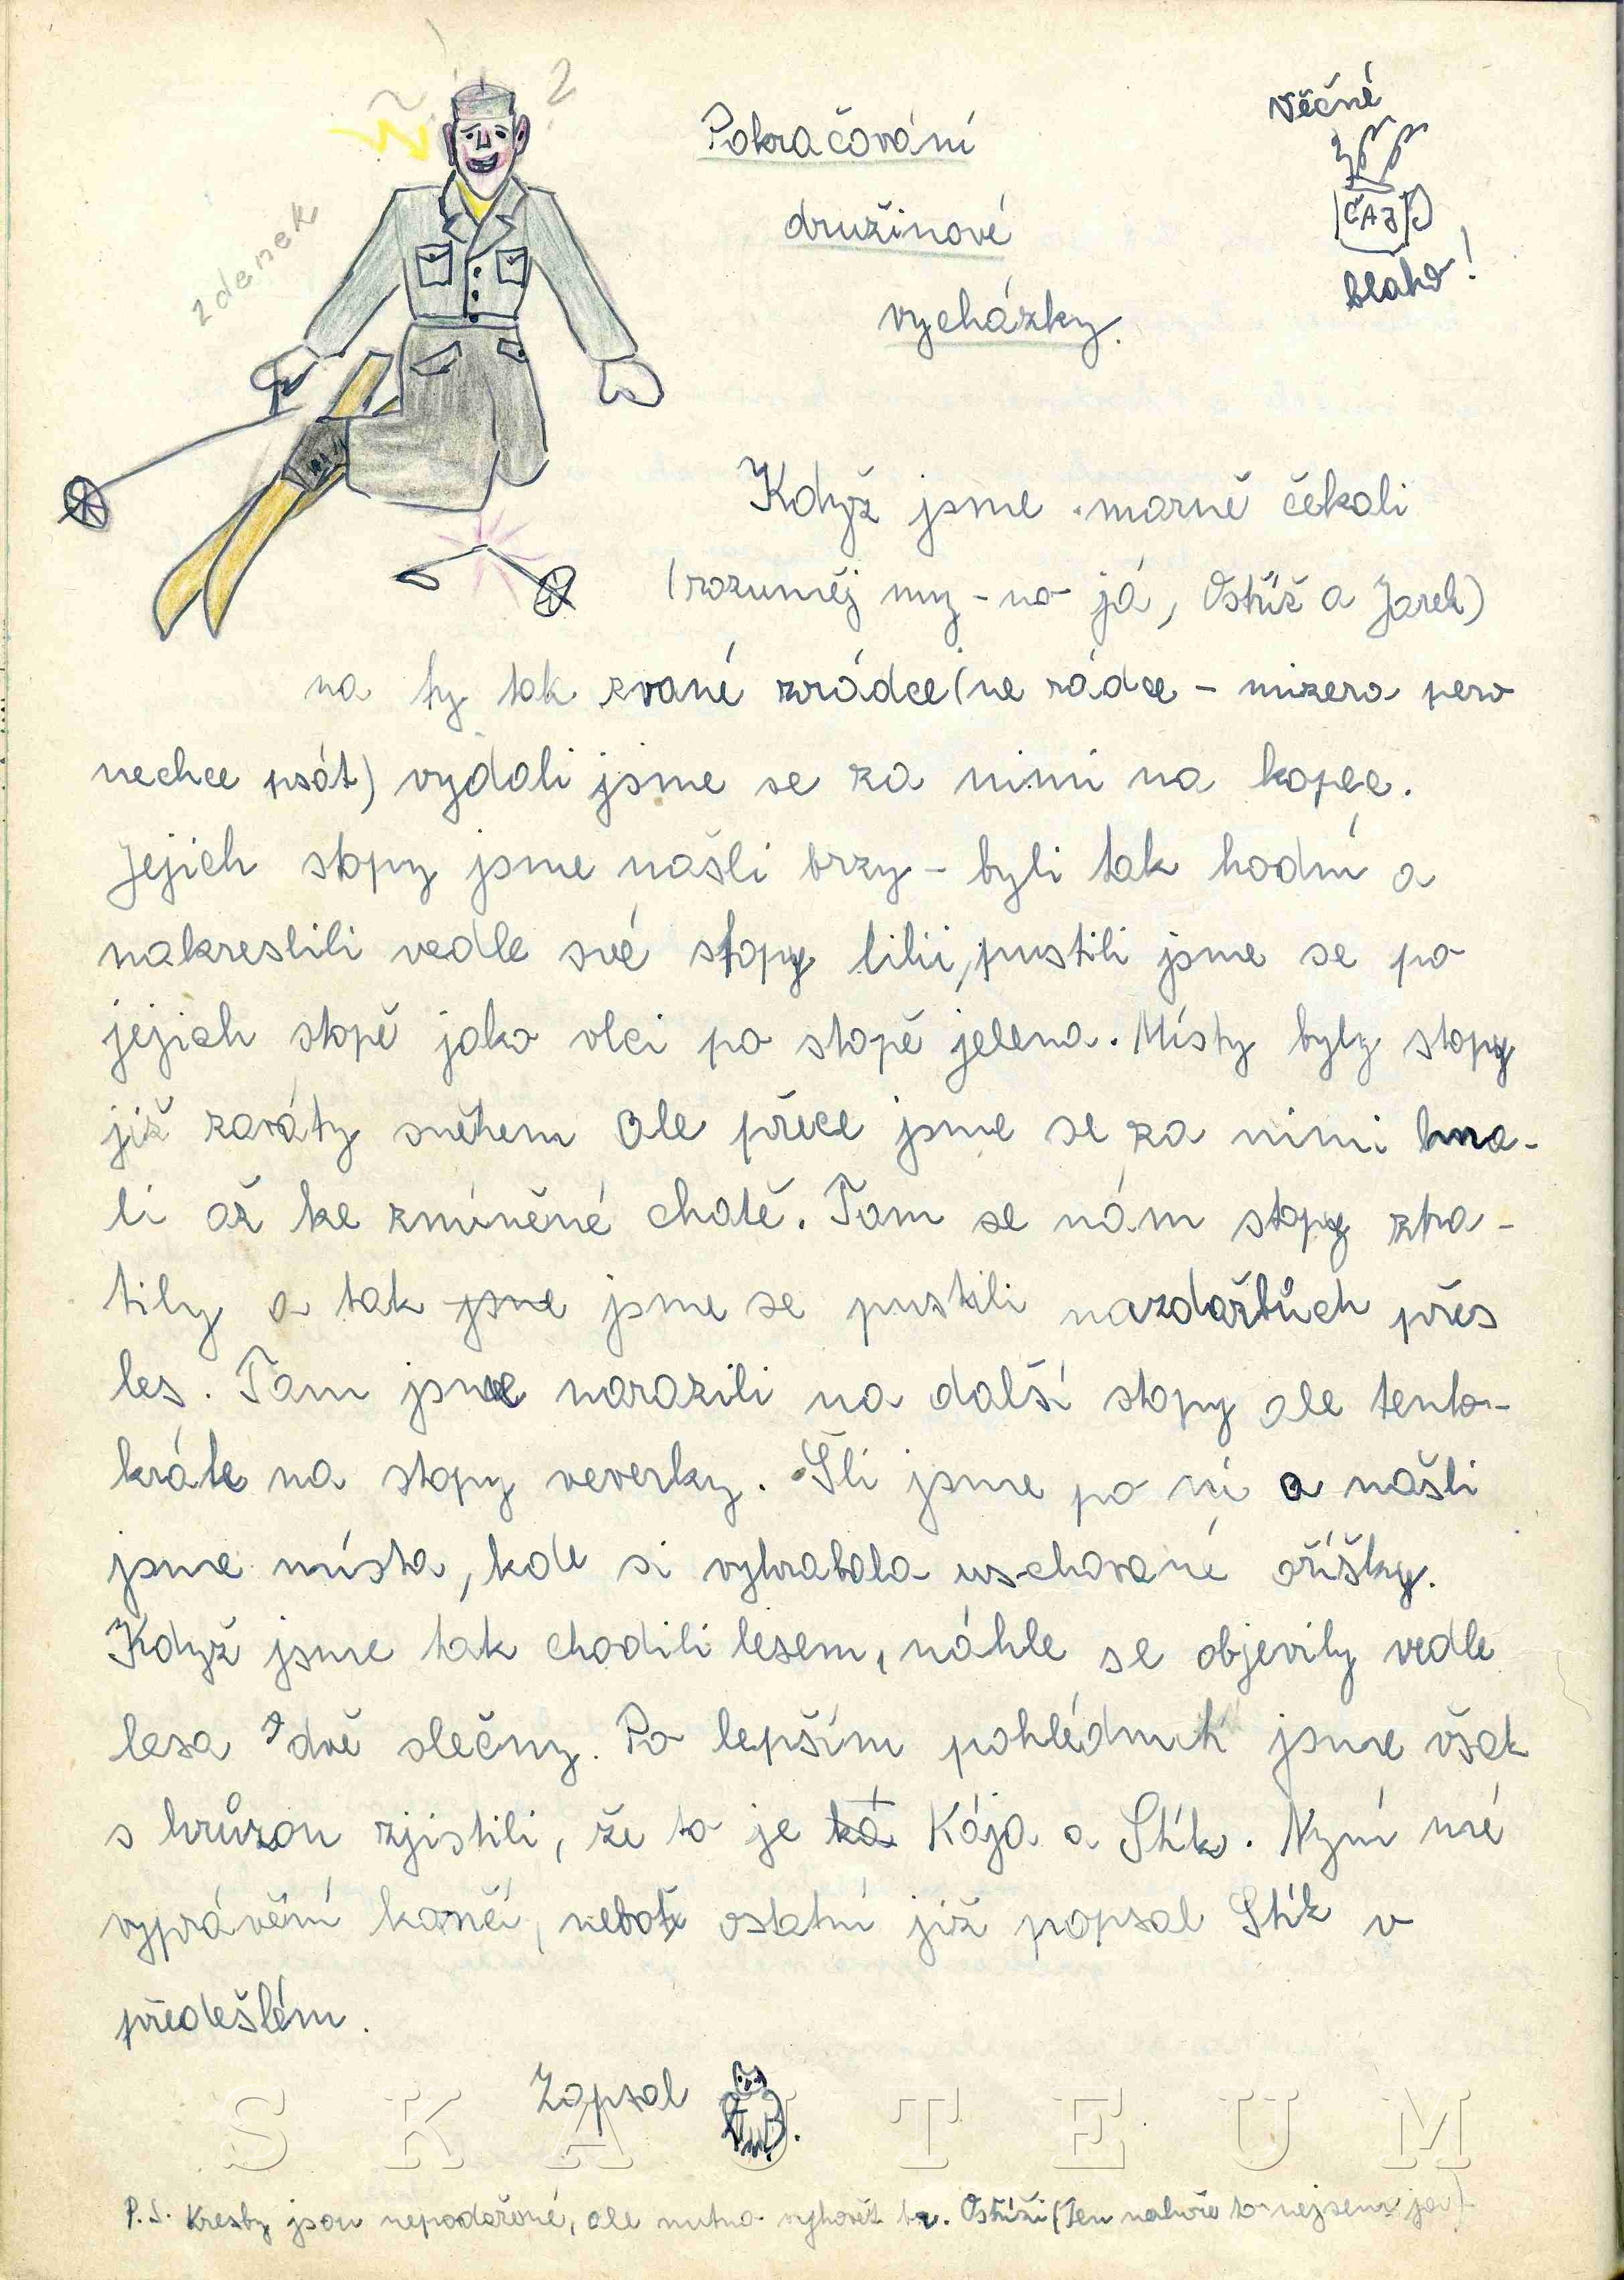 2
Věčné
Pokračování
zdenek
ČAJ
družinové
blaho!
vycházky.
Když jsme marně čekali
(rozuměj my - no já, Ostříž a Jarek)
na ty tak zvané zrádce (ne rádce - mizero pero
nechce psát) vydali jsme se za nimi na kopec.
Jejich stopy jsme našli brzy - byli tak hodní a
nakreslili vedle své stopy lilii, pustili jsme se po
jejich stopě jako vlci po stopě jelena. Místy byly stopy
již zaváty sněhem ale přece jsme se za nimi hna-
li až ke zmíněné chatě. Tam se nám stopy ztra-
tily a tak jsme jsme se pustili nazdařbůch přes
les. Tam jsme narazili na další stopy ale tento-
kráte na stopy veverky. Šli jsme po ní a našli
jsme místa, kde si vyhrabala uschované oříšky.
Když jsme tak chodili lesem, náhle se objevily vedle
lesa dvě slečny. Po lepším pohlédnutí jsme však
s hrůzou zjistili, že to je ká Kája a Stík. Nyní mé
vyprávění končí, neboť ostatní již popsal Stík v
předešlém.
Zapsal
SKAUTEUM
P.S. Kresby jsou nepodařené, ale nutno vyhovět br. Ostříži (Ten nahoře to nejsem já)